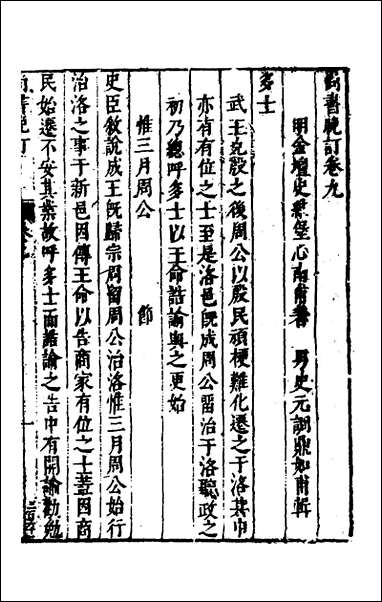 尚書晚訂卷九
明金壇史維堡心南甫著　男史元調鼎如甫輯
多士
武王克殷之後周公以殷民頑梗難化遷之于洛其中
亦有有位之士至是洛邑既成周公留治于洛聽政之
初乃總呼多士以王命誥諭與之更始
惟三月周公　節
史臣敘說成王既歸宗周留周公治洛惟三月周公始行
治洛之事于新邑因傳王命以告商家有位之士蓋因商
民始遷不安其業故呼多士而誥諭之告中有開諭勸勉
尚書晚訂